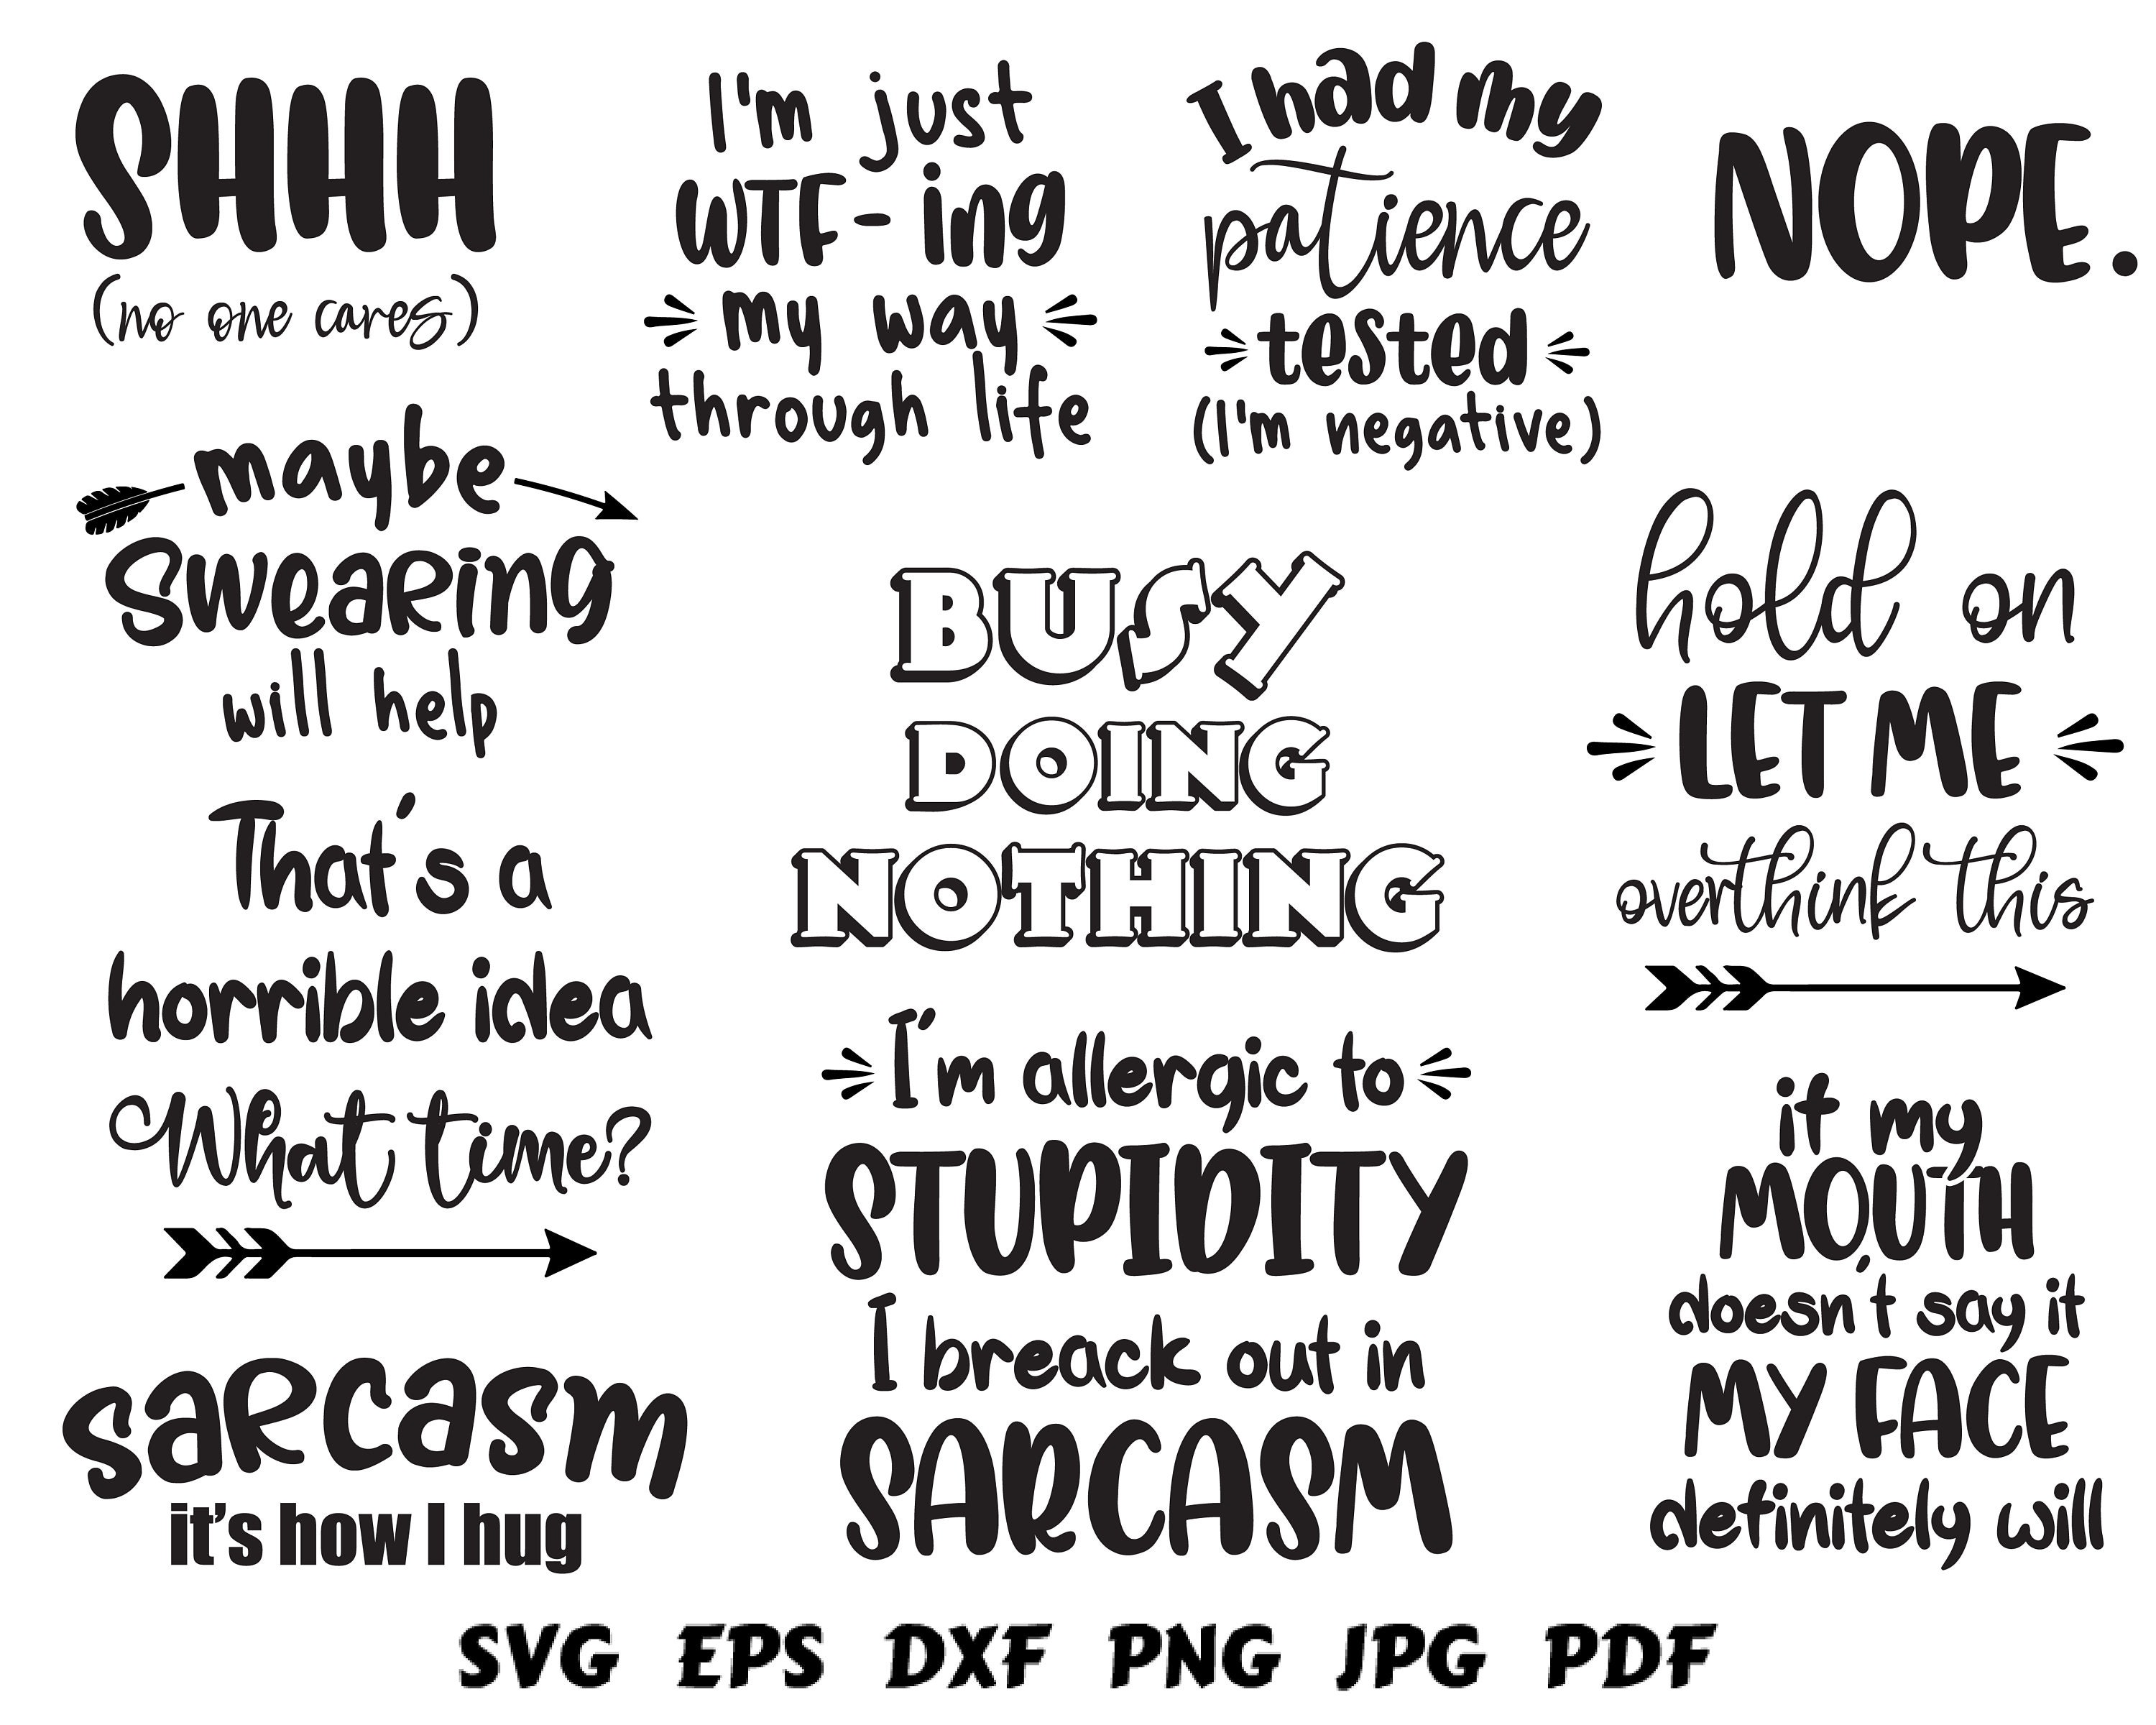 SHHH
(no one cares)
I'm just
WTF-ing
my way
through life
I had my
patience
tested
(I'm negative)
NOPE.
maybe
Swearing
will help
BUSY
DOING
NOTHING
hold on
LET ME
overthink this
That's a
horrible idea
What time?
I'm allergic to
STUPIDITY
I break out in
SARCASM
if my
MOUTH
doesn't say it
MY FACE
definitely will
sarcasm
it's how I hug
SVG EPS DXF PNG JPG PDF